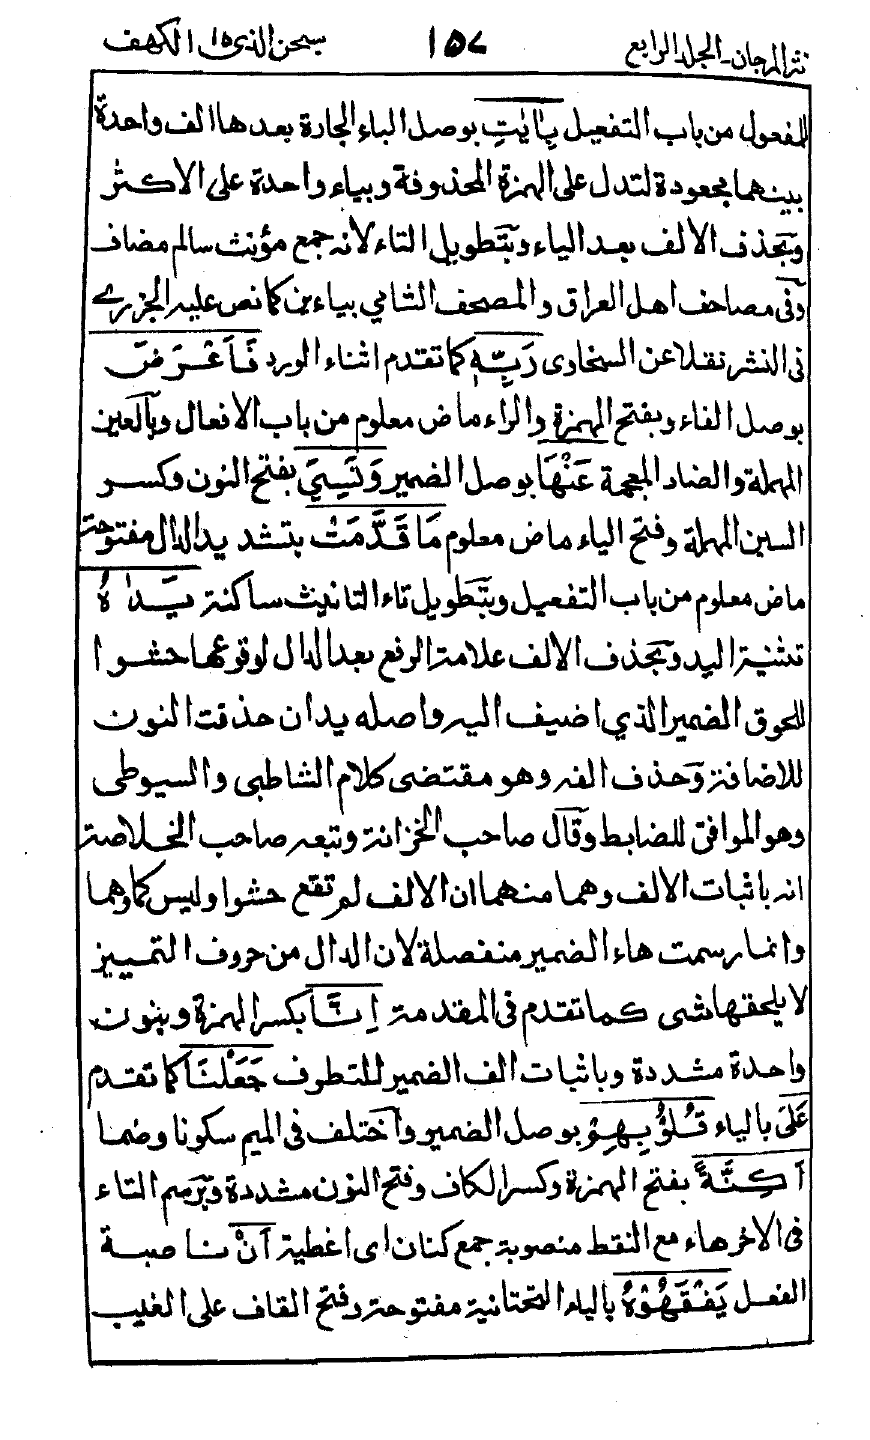 نثر المرجان - الجلد الرابع ١٥٧ سبحن الذى ١٥ الكهف
للمفعول من باب التفعيل بِاٰيٰتِ بوصل الباء الجارة بعدها الف واحدة
بينهما مجعودة لتدل على الهمزة المحذوفة وبياء واحدة على الاكثر
وبحذف الالف بعد الياء وبتطويل التاء لانه جمع مؤنث سالم مضاف
وفى مصاحف اهل العراق والمصحف الشامي بياءين كما نص عليه الجزرے
فى النشر نقلا عن السخاوى رَبِّهٖ كما تقدم اثناء الورد فَاَعْرَضَ
بوصل الفاء وبفتح الهمزة والراء ماض معلوم من باب الافعال وبالعين
المهملة والضاد المعجمة عَنْهَا بوصل الضمير وَنَسِيَ بفتح النون وكسر
السين المهملة وفتح الياء ماض معلوم مَا قَدَّمَتْ بتشديد الدال مفتوحة
ماض معلوم من باب التفعيل وبتطويل تاء التانيث ساكنة يَدٰاهُ
تثنية اليد وبحذف الالف علامة الرفع بعد الدال لوقوعها حشوا
للحوق الضمير الذي اضيف اليه واصله يدان حذفت النون
للاضافة وحذف الفه وهو مقتضى كلام الشاطبى والسيوطى
وهو الموافق للضابط وقال صاحب الخزانة وتبعه صاحب الخلاصة
انه باثبات الالف وهما منهما ان الالف لم تقع حشوا وليس كما وهما
وانما رسمت هاء الضمير منفصلة لان الدال من حروف التمييز
لا يلحقها شى كما تقدم فى المقدمة اِنَّا بكسر الهمزة وبنون
واحدة مشددة وباثبات الف الضمير للتطرف جَعَلْنَا كما تقدم
عَلىَ بالياء قُلُوْبِهِمْ بوصل الضمير واختلف فى الميم سكونا وضما
اَكِنَّةً بفتح الهمزة وكسر الكاف وفتح النون مشددة وبرسم التاء
فى الاخر هاء مع النقط منصوبة جمع كنان اى اغطية اَنْ ناصبة
الفعل يَفْقَهُوْهُ بالياء التحتانية مفتوحة وفتح القاف على الغيب